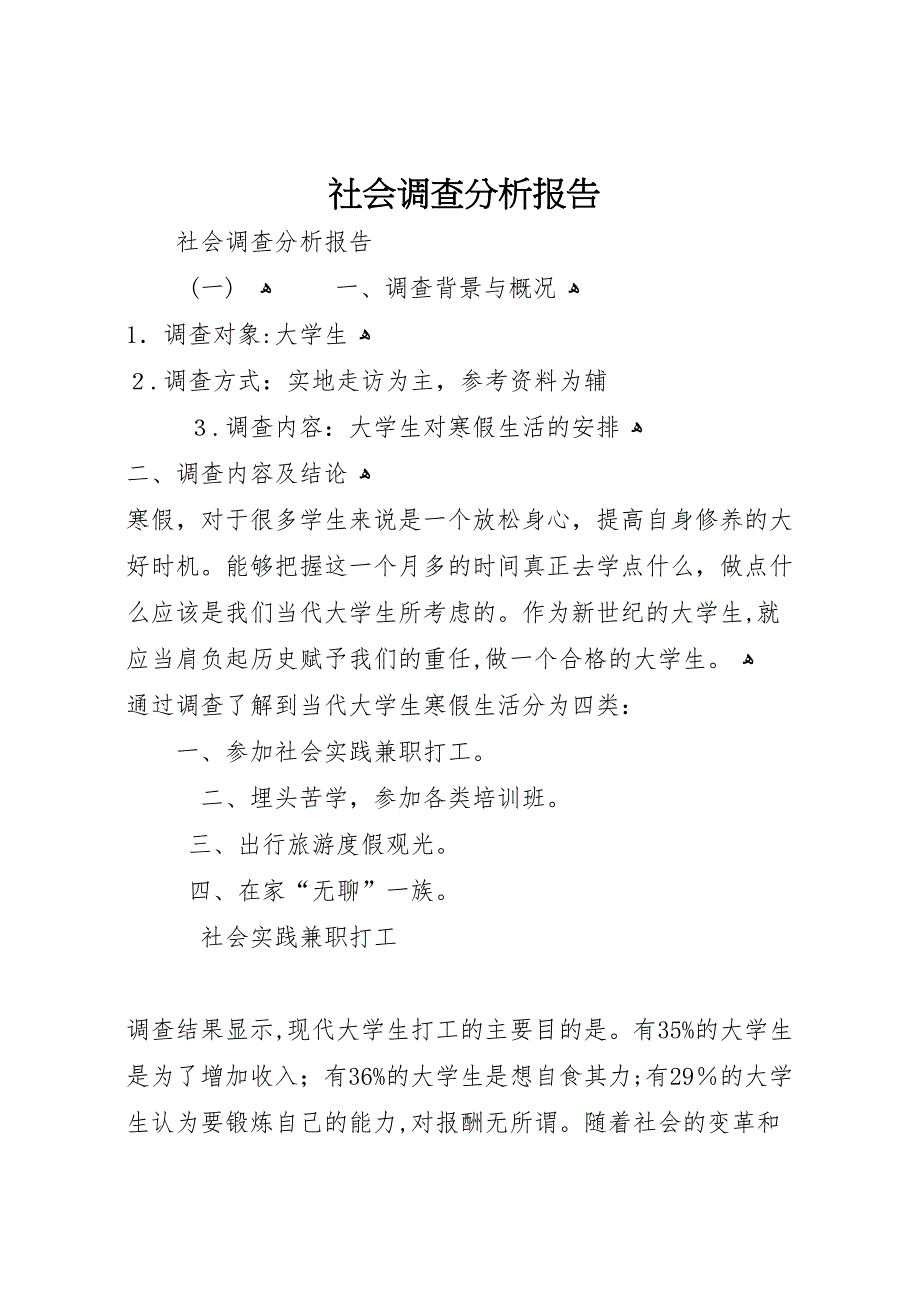 社会调查分析报告
社会调查分析报告
(一) ﻫ 一、调查背景与概况 ﻫ
1. 调查对象:大学生 ﻫ
２.调查方式：实地走访为主，参考资料为辅
３.调查内容：大学生对寒假生活的安排 ﻫ
二、调查内容及结论 ﻫ
寒假，对于很多学生来说是一个放松身心，提高自身修养的大
好时机。能够把握这一个月多的时间真正去学点什么，做点什
么应该是我们当代大学生所考虑的。作为新世纪的大学生,就
应当肩负起历史赋予我们的重任,做一个合格的大学生。 ﻫ
通过调查了解到当代大学生寒假生活分为四类：
一、参加社会实践兼职打工。
二、埋头苦学，参加各类培训班。
三、出行旅游度假观光。
四、在家“无聊”一族。
社会实践兼职打工
调查结果显示,现代大学生打工的主要目的是。有35%的大学生
是为了增加收入；有36%的大学生是想自食其力;有29％的大学
生认为要锻炼自己的能力,对报酬无所谓。随着社会的变革和